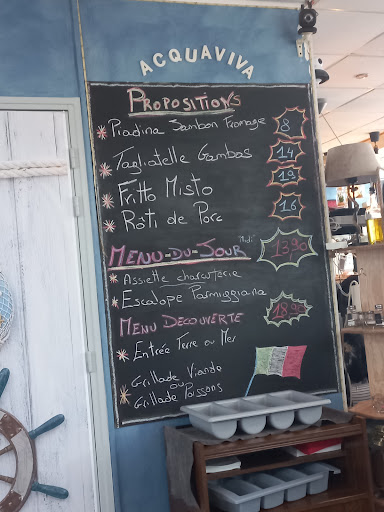 ACQUAVIVA
PROPOSITIONS
Piadina Jambon Fromage 8
Tagliatelle Gambas 14
Fritto Misto 19
Rôti de Porc 16
MENU-DU-JOUR Midi 13,90
Assiette charcuterie
Escalope Parmiggiana
MENU DECOUVERTE 18.90
Entrée Terre ou Mer
Grillade Viande
ou
Grillade Poissons